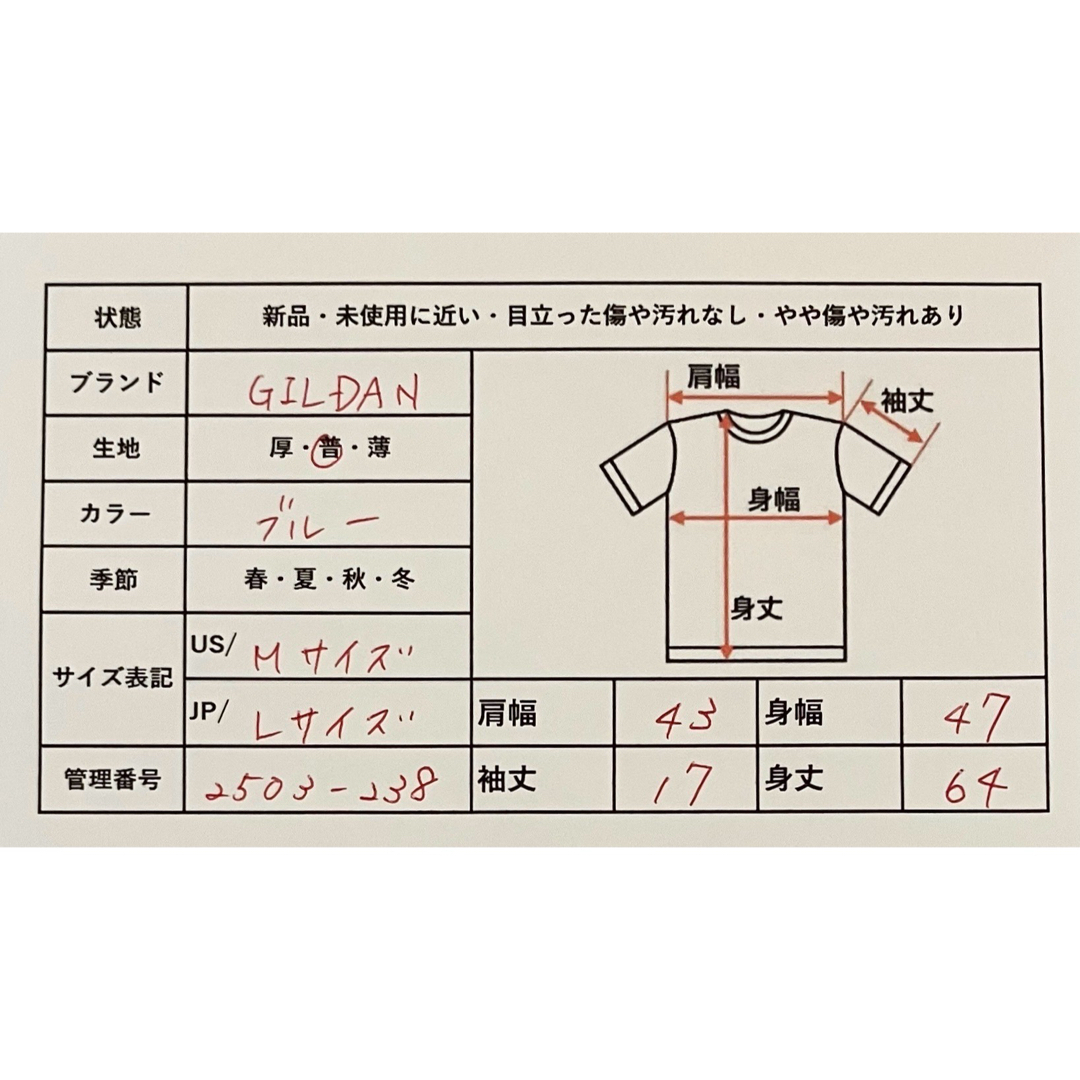 状態 新品・未使用に近い・目立った傷や汚れなし・やや傷や汚れあり
ブランド GILDAN
生地 厚・普・薄
カラー ブルー
季節 春・夏・秋・冬
サイズ表記
US/ Mサイズ
JP/ Lサイズ
管理番号 2503-238
肩幅
袖丈
身幅
身丈
肩幅 43 身幅 47
袖丈 17 身丈 64